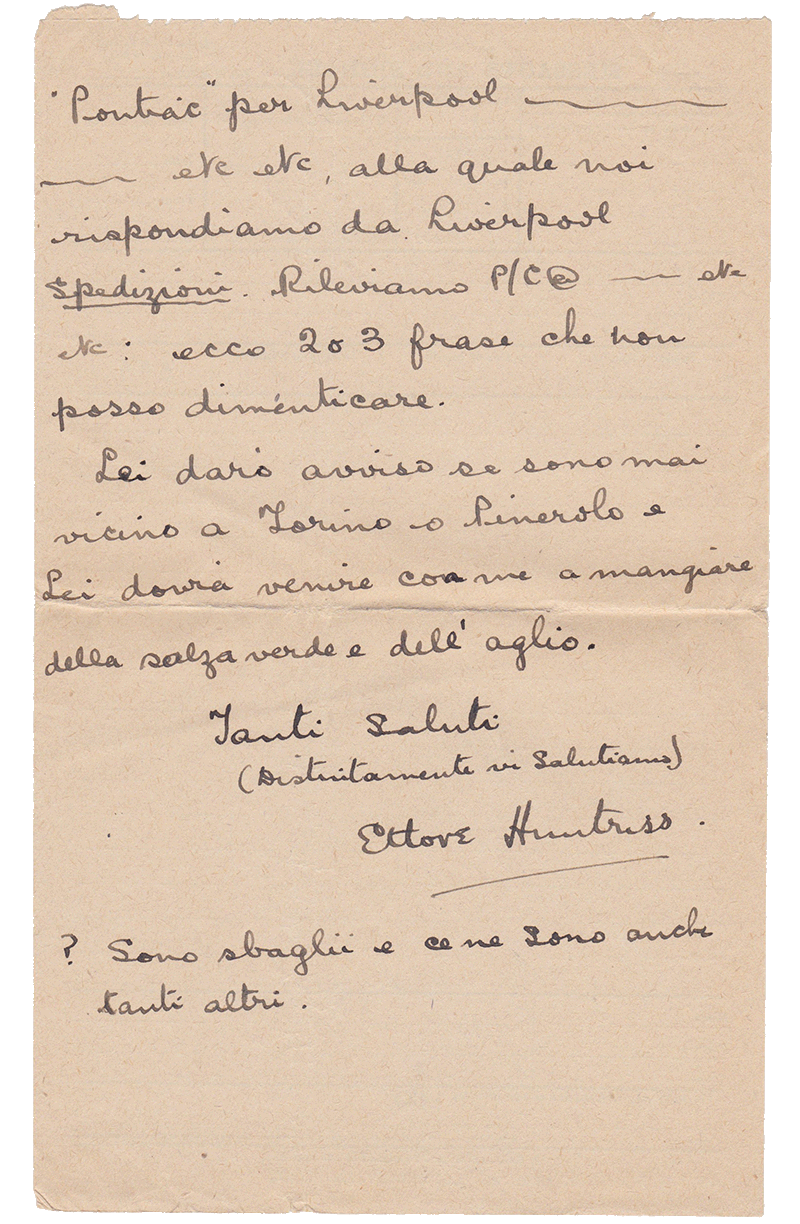 "Pontiac" per Liverpool ———
—— etc etc, alla quale noi
rispondiamo da Liverpool
Spedizioni. Rileviamo P/C@ —— etc
etc: ecco 2 o 3 frase che non
posso dimenticare.
Lei darò avviso se sono mai
vicino a Torino o Pinerolo e
Lei dovrà venire con me a mangiare
della salza verde e dell' aglio.
Tanti saluti
(Distintamente vi Salutiamo)
Ettore Huntriss.
? Sono sbaglii e ce ne sono anche
tanti altri.